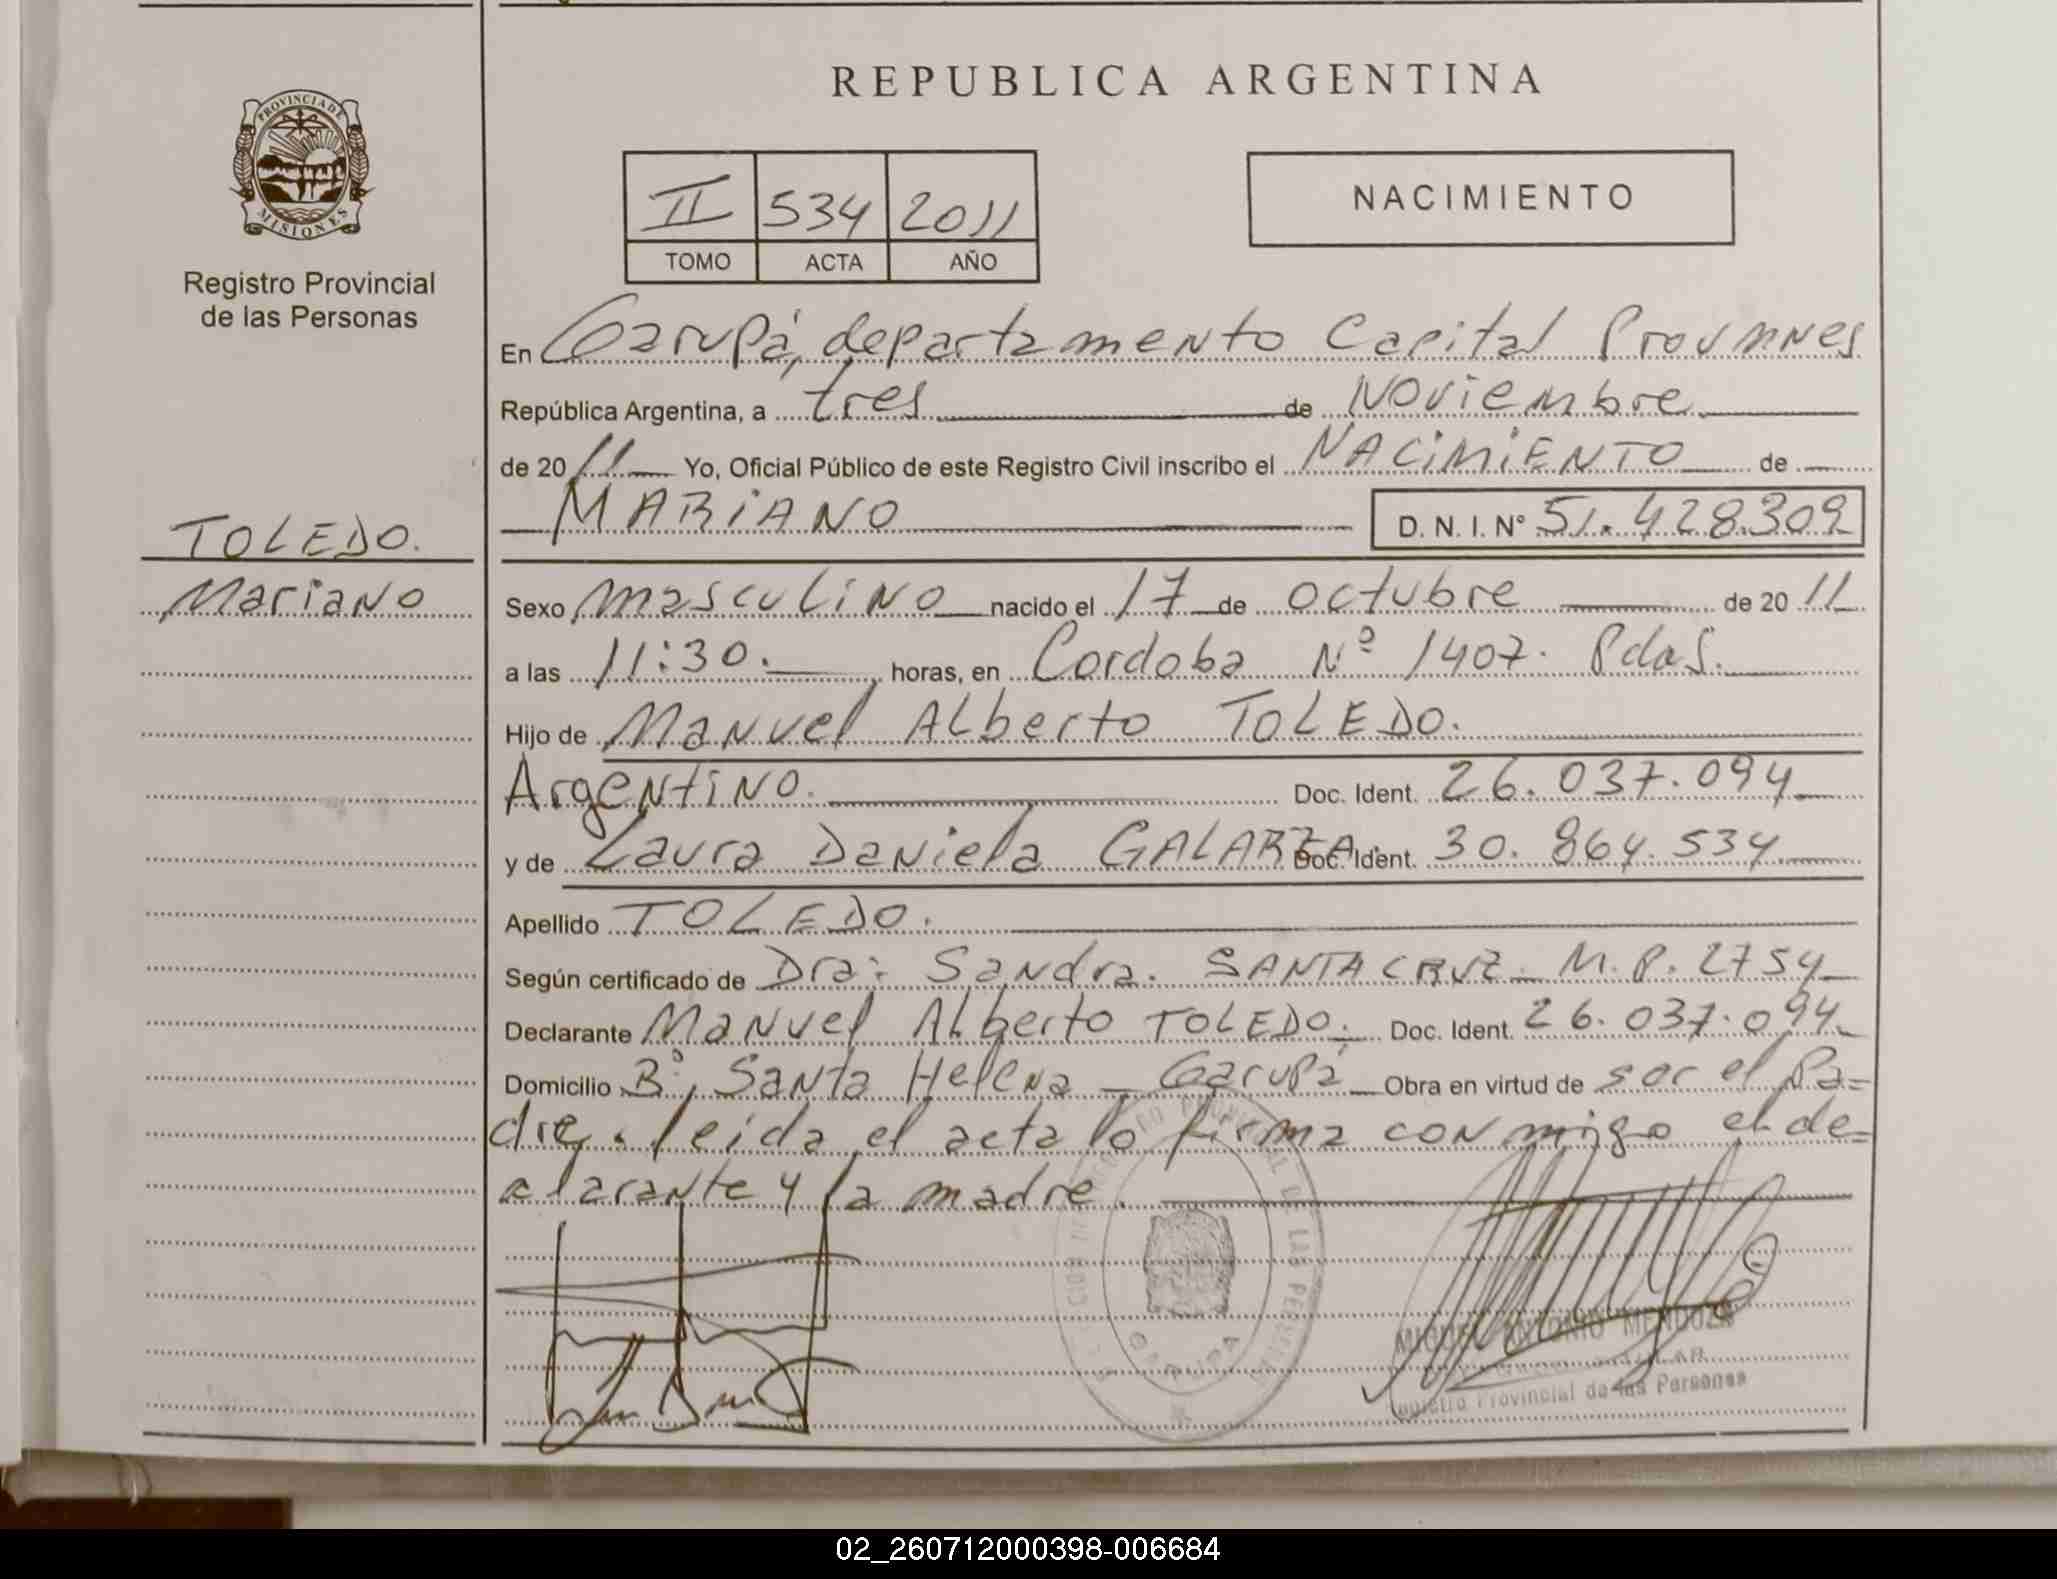 REPUBLICA ARGENTINA
PROVINCIA DE
MISIONES
Registro Provincial
de las Personas
II 534 2011
TOMO ACTA AÑO
NACIMIENTO
En Garupá, departamento Capital
República Argentina, a tres de Noviembre
de 2011 Yo, Oficial Público de este Registro Civil inscribo el NACIMIENTO de
MARIANO D. N. I. N° 51.428.309
TOLEDO.
Mariano
Sexo masculino nacido el 17 de octubre de 2011
a las 11:30. horas, en Cordoba Nº 1407. Pdas.
Hijo de Manuel Alberto TOLEDO.
Argentino. Doc. Ident. 26.037.094
y de Laura Daniela GALARZA. Doc. Ident. 30.864.534
Apellido TOLEDO.
Según certificado de Dra: Sandra. SANTACRUZ M.P. 2754
Declarante Manuel Alberto TOLEDO. Doc. Ident. 26.037.094
Domicilio Bº, Santa Helena - Garupá Obra en virtud de ser el Pa=
dre. leida el acta lo firma conmigo el de=
clarante y la madre.
GARUPA
MIGUEL ANTONIO MENDOZA
Registro Provincial de las Personas
02_260712000398-006684